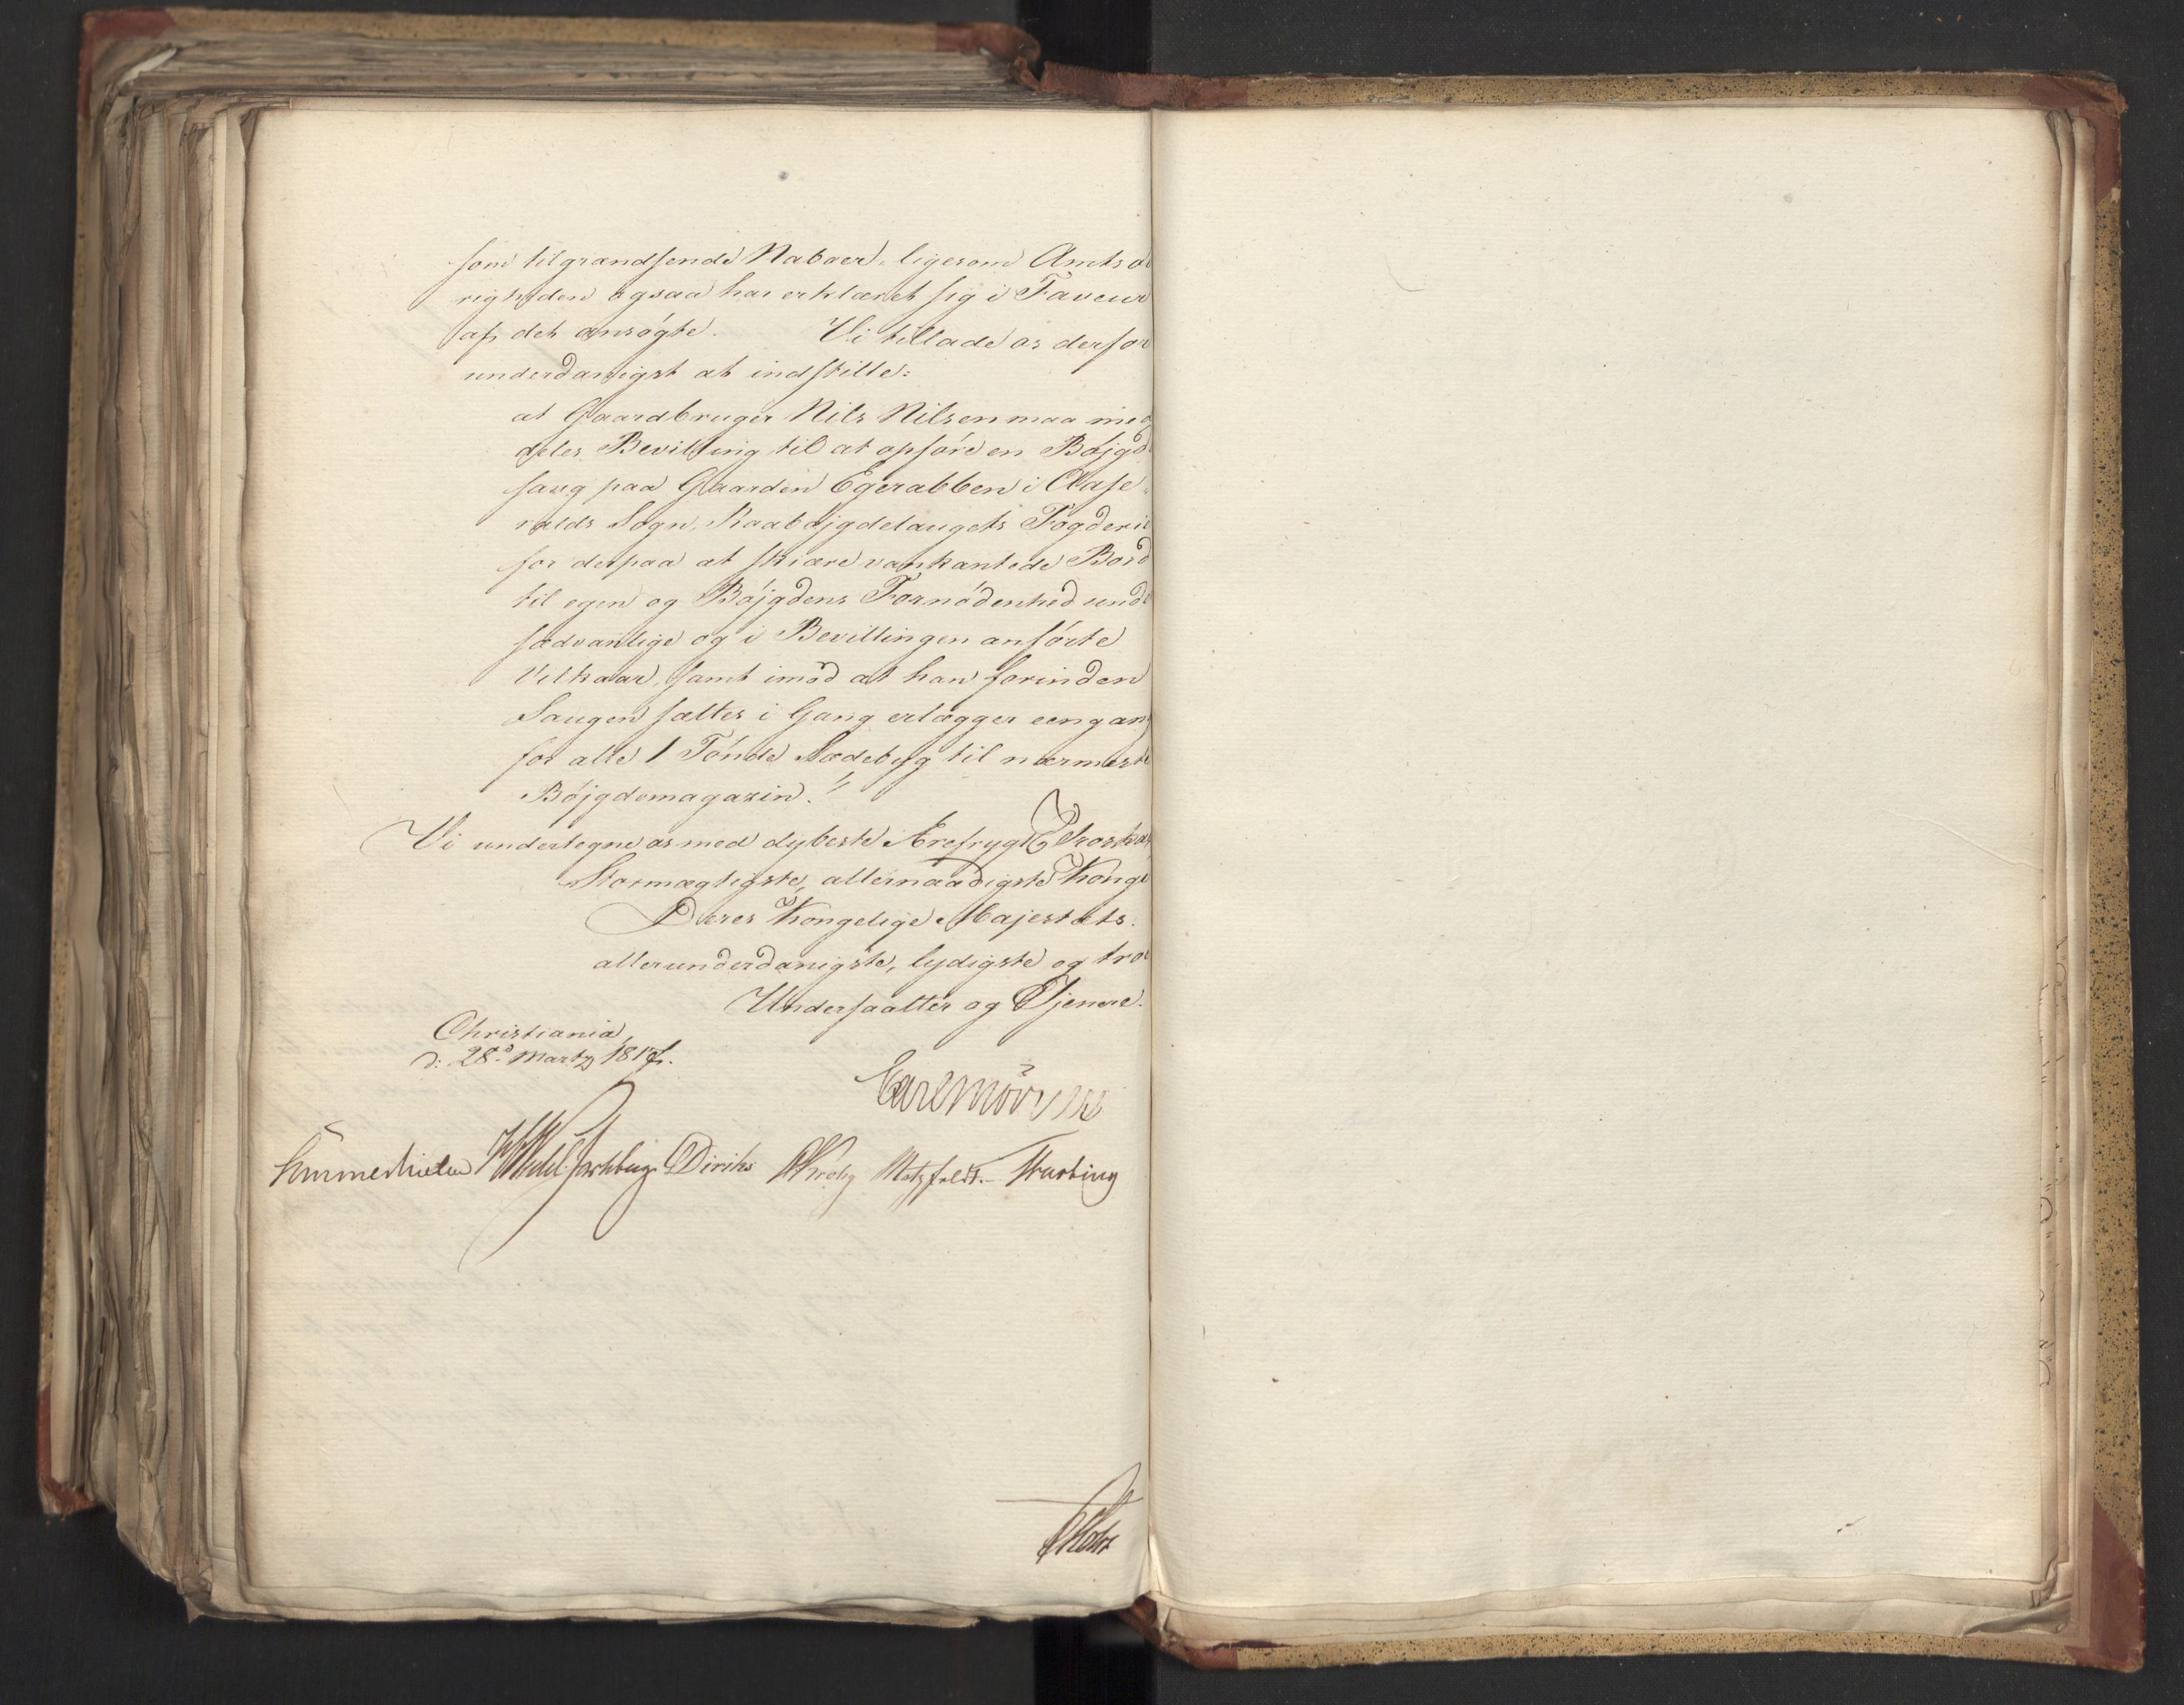 som tilgrændsende Naboer, ligesom Amtsø
righeden ogsaa har erklæret sig i Faveur
af det ansøgte. Vi tillade os derfor
underdanigst at indstille:
at Gaardbruger Nils Nilsen maa med
deles Bevilling til at opføre en Bøjgd
saug paa Gaarden Egerabben i Aase
ralds Sogn, Raabøjgdelaugets Fogderie
for derpaa at skiære vankantede Bord
til egen og Bøjgdens Fornødenhed unde
sædvanlige og i Bevillingen anførte
Vilkaar, samt imod at han forinden
Saugen sættes i Gang erlægger eengang
for alle 1 Tønde Sædebyg til nærmeste
Bøjgdemagazin.
Vi undertegne os med dybeste Ærefrygt
Stormægtigste, allernaadigste Konge
Deres Kongelige Majestæts.
allerunderdanigste, lydigste og troe
Undersaatter og Tjenere.
Christiania,
d: 28d Martz 1817.
Carl Mörner
Sommerhielm Wedel Jarlsberg Diriks Krohg Motzfeldt Thulstrup